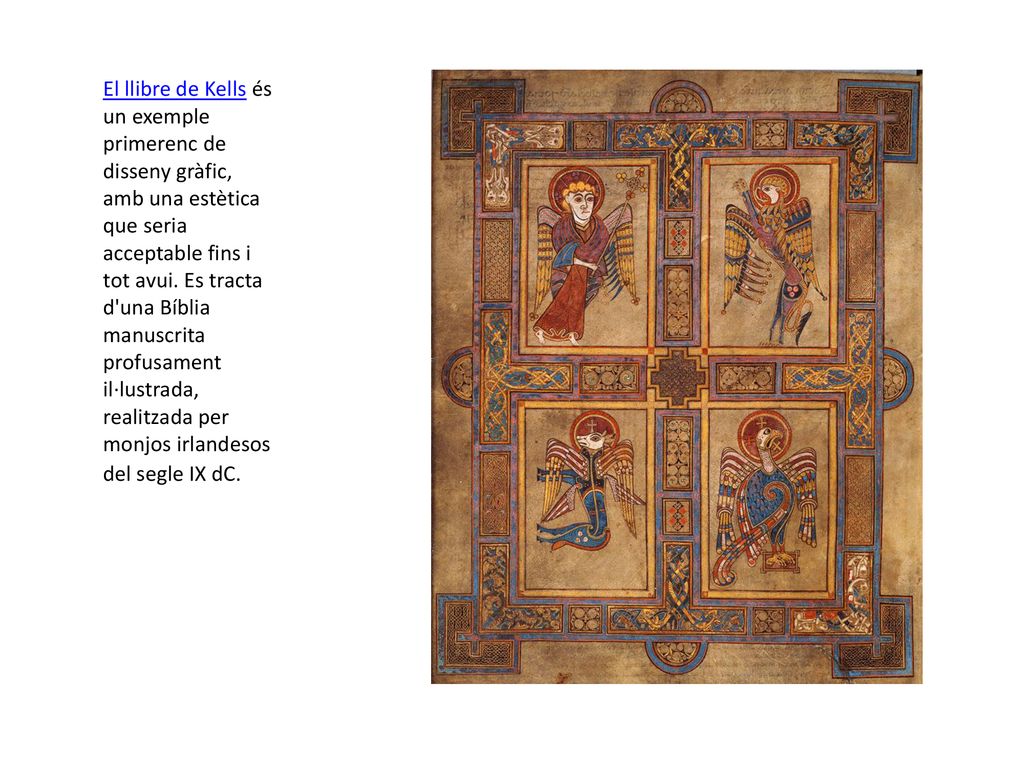 El llibre de Kells és
un exemple
primerenc de
disseny gràfic,
amb una estètica
que seria
acceptable fins i
tot avui. Es tracta
d'una Bíblia
manuscrita
profusament
il·lustrada,
realitzada per
monjos irlandesos
del segle IX dC.